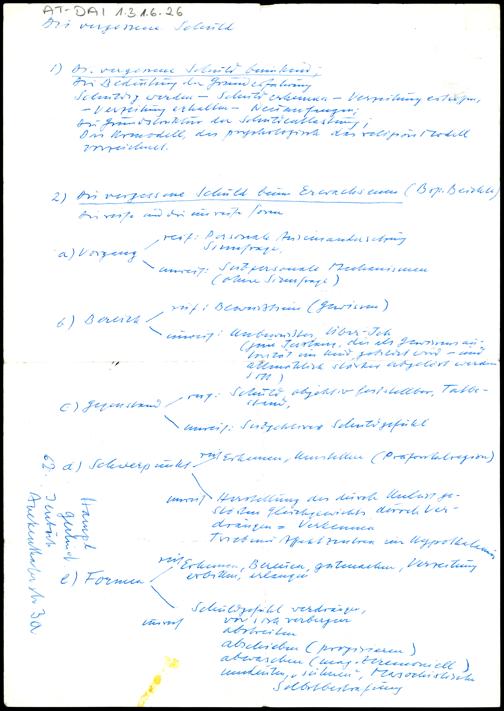 AT-DAI 1.3.1.6.26
Die vergessene Schuld
1) Die vergessene Schuld beim Kind;
Die Bedeutung der Grunderfahrung
Schuldig werden – Schuld erkennen – Verzeihung erbitten,
– Verzeihung erhalten – Neuanfangen;
Die Grundstruktur der Schuldentlastung;
Das Urmodell, das psychologisch das religiöse Modell
vorzeichnet.
2) Die vergessene Schuld beim Erwachsenen (Bsp. Beichte)
Die reife und die unreife Form
a) Vorgang
reif: Personale Auseinandersetzung
Sinnfrage.
unreif: Subpersonale Mechanismen
(ohne Sinnfrage)
b) Bereich
reif: Bewußtsein (Gewissen)
unreif: Unbewußtes, Über-Ich
(jene Instanz, die als Gewissensau-
torität im Kind gebildet wird – und
allmählich stärker abgelöst werden
soll)
c) Gegenstand
reif: Schuld, objektiv feststellbar, Tatbe-
stand,
unreif: Subjektives Schuldgefühl
d) Schwerpunkt
reif Erkennen, Umstellen (Präfrontalregion)
unreif Herstellung des durch Unlust ge-
störten Gleichgewichts durch Ver-
drängen = Verkennen
Hypothalamus
e) Formen
reif Erkennen, Bereuen, gutmachen, Verzeihung
erbitten, erlangen
unreif
Schuldgefühl verdrängen,
vor sich verbergen
abstreiten
abschieben (projizieren)
abwaschen (mag. Zeremoniell)
umdeuten, sühnen, Masochistische
Selbstbestrafung
62.
3a